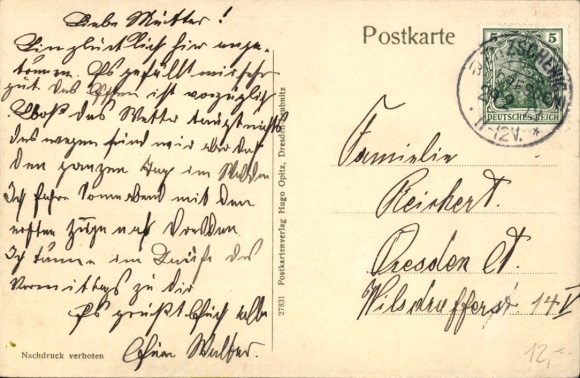 Liebe Mutter!
Bin glücklich hier ange-
kommen. Es gefällt mir sehr
gut. Das Essen ist vorzüglich
Bloß das Wetter taugt nichts
deswegen sind wir aber doch
den ganzen Tag im Walde
Ich fahre Sonnabend mit dem
ersten Zuge nach Dresden
Ich komme im Laufe des
Vormittags zu dir
Es grüßt Euch alle
Euer Walter.
Nachdruck verboten
27831 Postkartenverlag Hugo Opitz, Dresden-Laubnitz
Postkarte
5 5
DEUTSCHES REICH
11-12V.
Familie
Reichert.
Dresden A.
Wilsdrufferstr 14 V
12,-